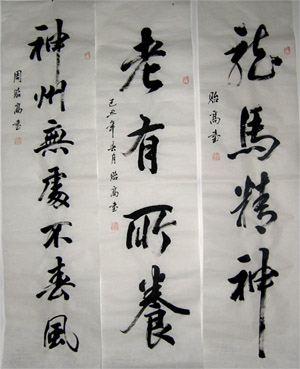 龍馬精神
贻高书
老有所養
己丑年春月贻高書
神州無處不春風
周贻高書